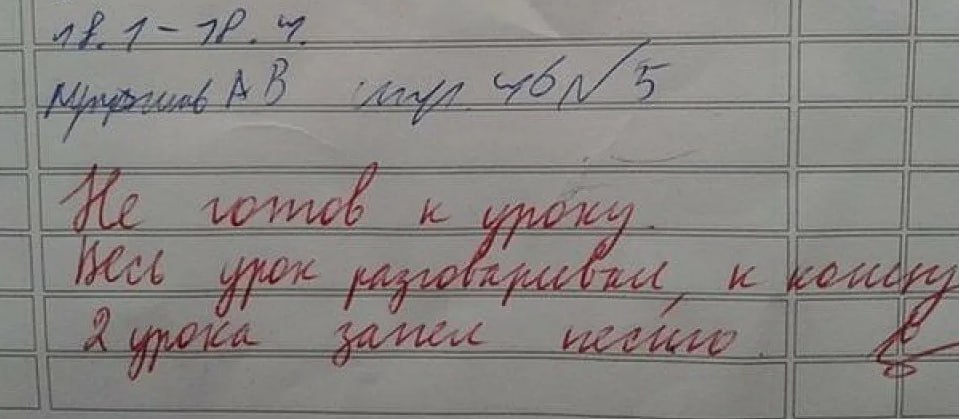 18.1-18.4.
АВ стр. 46 № 5
Не готов к уроку.
Весь урок разговаривал, к концу
2 урока запел песню.